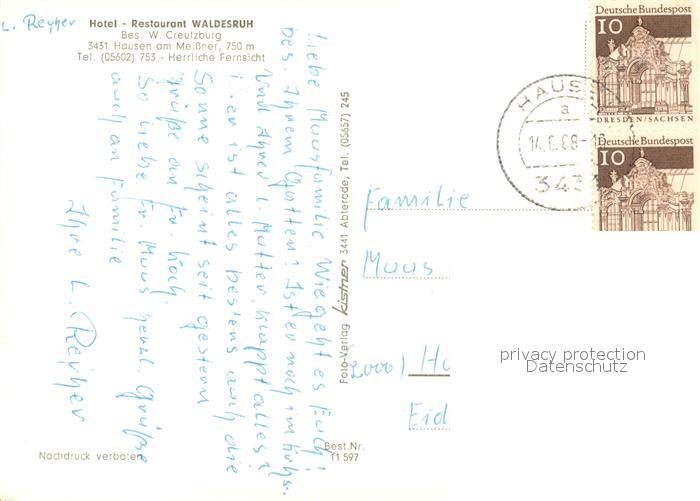 L. Reyher
Hotel - Restaurant WALDESRUH
Bes. W. Creutzburg
3431 Hausen am Meißner, 750 m
Tel. (05602) 753 - Herrliche Fernsicht
Liebe Musfamilie Wie geht es Euch?
bes. Ihrem Gatten? Ist er noch im
Und Ihrer l. Mutter, klappt alles?
Hier ist alles bestens auch die
Sonne scheint seit gestern
Grüße an Fr. Koch,
So liebe Fr. Muus herzl. Grüße
auch an Familie
Ihre L. Reyher
Foto-Verlag kistner 3441 Abterode, Tel. (05657) 245
Nachdruck verboten
Best.Nr.
11 597
Deutsche Bundespost
10
DRESDEN/SACHSEN
Deutsche Bundespost
10
HAUS
a
14.6.68-18
343
Familie
Muus
(2000) Ha
Eid
privacy protection
Datenschutz